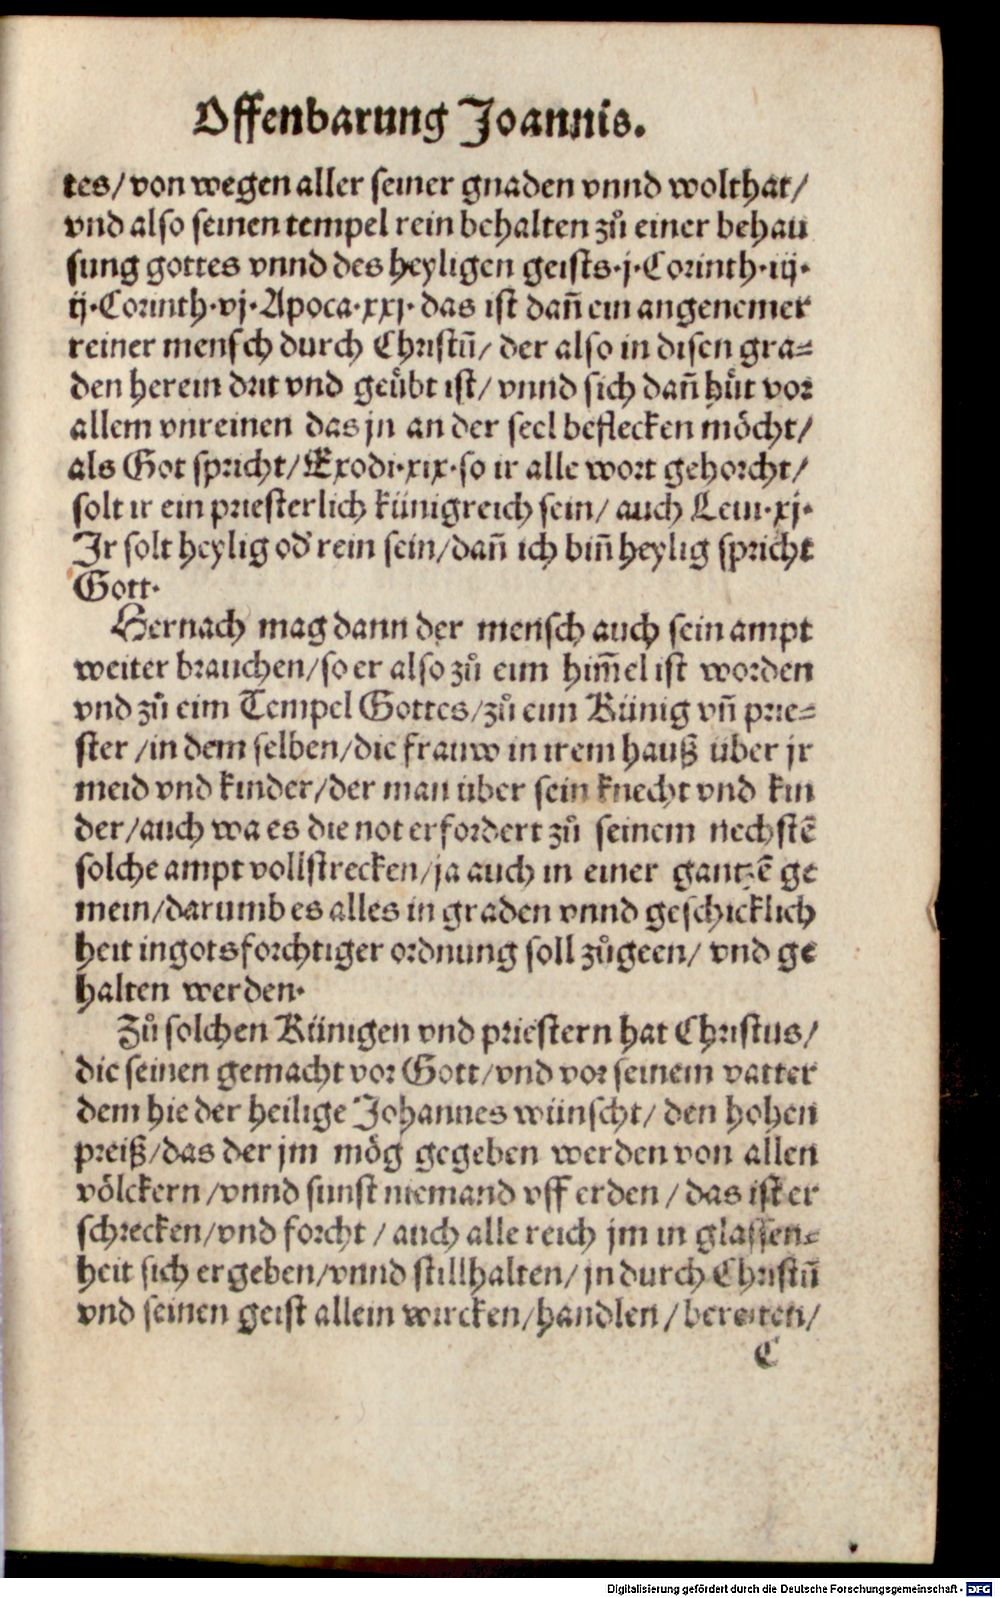 Offenbarung Joannis.
tes/ von wegen aller seiner gnaden vnnd wolthat/
vnd also seinen tempel rein behalten zů einer behau
sung gottes vnnd des heyligen geists. j. Corinth. iij.
ij. Corinth. vj. Apoca. xxj. das ist dañ ein angenemer
reiner mensch durch Christū/ der also in disen gra=
den herein drit vnd geübt ist/ vnnd sich dañ hůt vor
allem vnreinen das jn an der seel beflecken möcht/
als Got spricht/ Exodi. xix. so ir alle wort gehorcht/
solt ir ein priesterlich künigreich sein/ auch Leui. xj.
Jr solt heylig od' rein sein/ dañ ich biñ heylig spricht
Gott.
Hernach mag dann der mensch auch sein ampt
weiter brauchen/ so er also zů eim him̄el ist worden
vnd zů eim Tempel Gottes/ zů eim Künig vñ prie=
ster / in dem selben/ die frauw in irem hauß über jr
meid vnd kinder/ der man über sein knecht vnd kin
der/ auch wa es die not erfordert zů seinem nechstē
solche ampt vollstrecken/ ja auch in einer gantzē ge
mein/ darumb es alles in graden vnnd geschicklich
heit in gotsforchtiger ordnung soll zůgeen/ vnd ge
halten werden.
Zů solchen Künigen vnd priestern hat Christus/
die seinen gemacht vor Gott/ vnd vor seinem vatter
dem hie der heilige Johannes wünscht/ den hohen
preiß/ das der jm mög gegeben werden von allen
völckern / vnnd sunst niemand vff erden / das ist er
schrecken/ vnd forcht / auch alle reich jm in glassen=
heit sich ergeben/ vnnd stillhalten/ jn durch Christū
vnd seinen geist allein wircken/ handlen / bereiten/
C
Digitalisierung gefördert durch die Deutsche Forschungsgemeinschaft - DFG